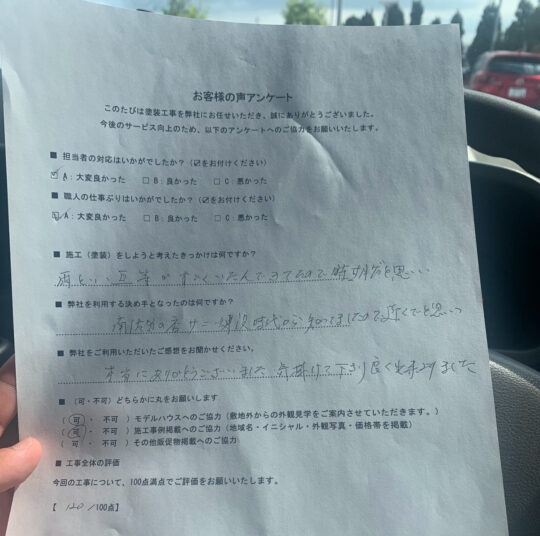 お客様の声アンケート
このたびは塗装工事を弊社にお任せいただき、誠にありがとうございました。
今後のサービス向上のため、以下のアンケートへのご協力をお願いいたします。
■ 担当者の対応はいかがでしたか?(☑をお付けください)
☑ A:大変良かった □ B:良かった □ C:悪かった
■ 職人の仕事ぶりはいかがでしたか?(☑をお付けください)
☑ A:大変良かった □ B:良かった □ C:悪かった
■ 施工(塗装)をしようと考えたきっかけは何ですか?
雨とい 瓦等が すごく いたんで
■ 弊社を利用する決め手となったのは何ですか?
時代から 知って
■ 弊社をご利用いただいたご感想をお聞かせください。
本当にありがとうございました 気掛けて下さり 良く出来上りました
■ (可・不可)どちらかに丸をお願いします
( 可 ・ 不可 ) モデルハウスへのご協力(敷地外からの外観見学をご案内させていただきます。)
( 可 ・ 不可 ) 施工事例掲載へのご協力(地域名・イニシャル・外観写真・価格帯を掲載)
( 可 ・ 不可 ) その他販促物掲載へのご協力
■ 工事全体の評価
今回の工事について、100点満点でご評価をお願いいたします。
【 120 /100点】